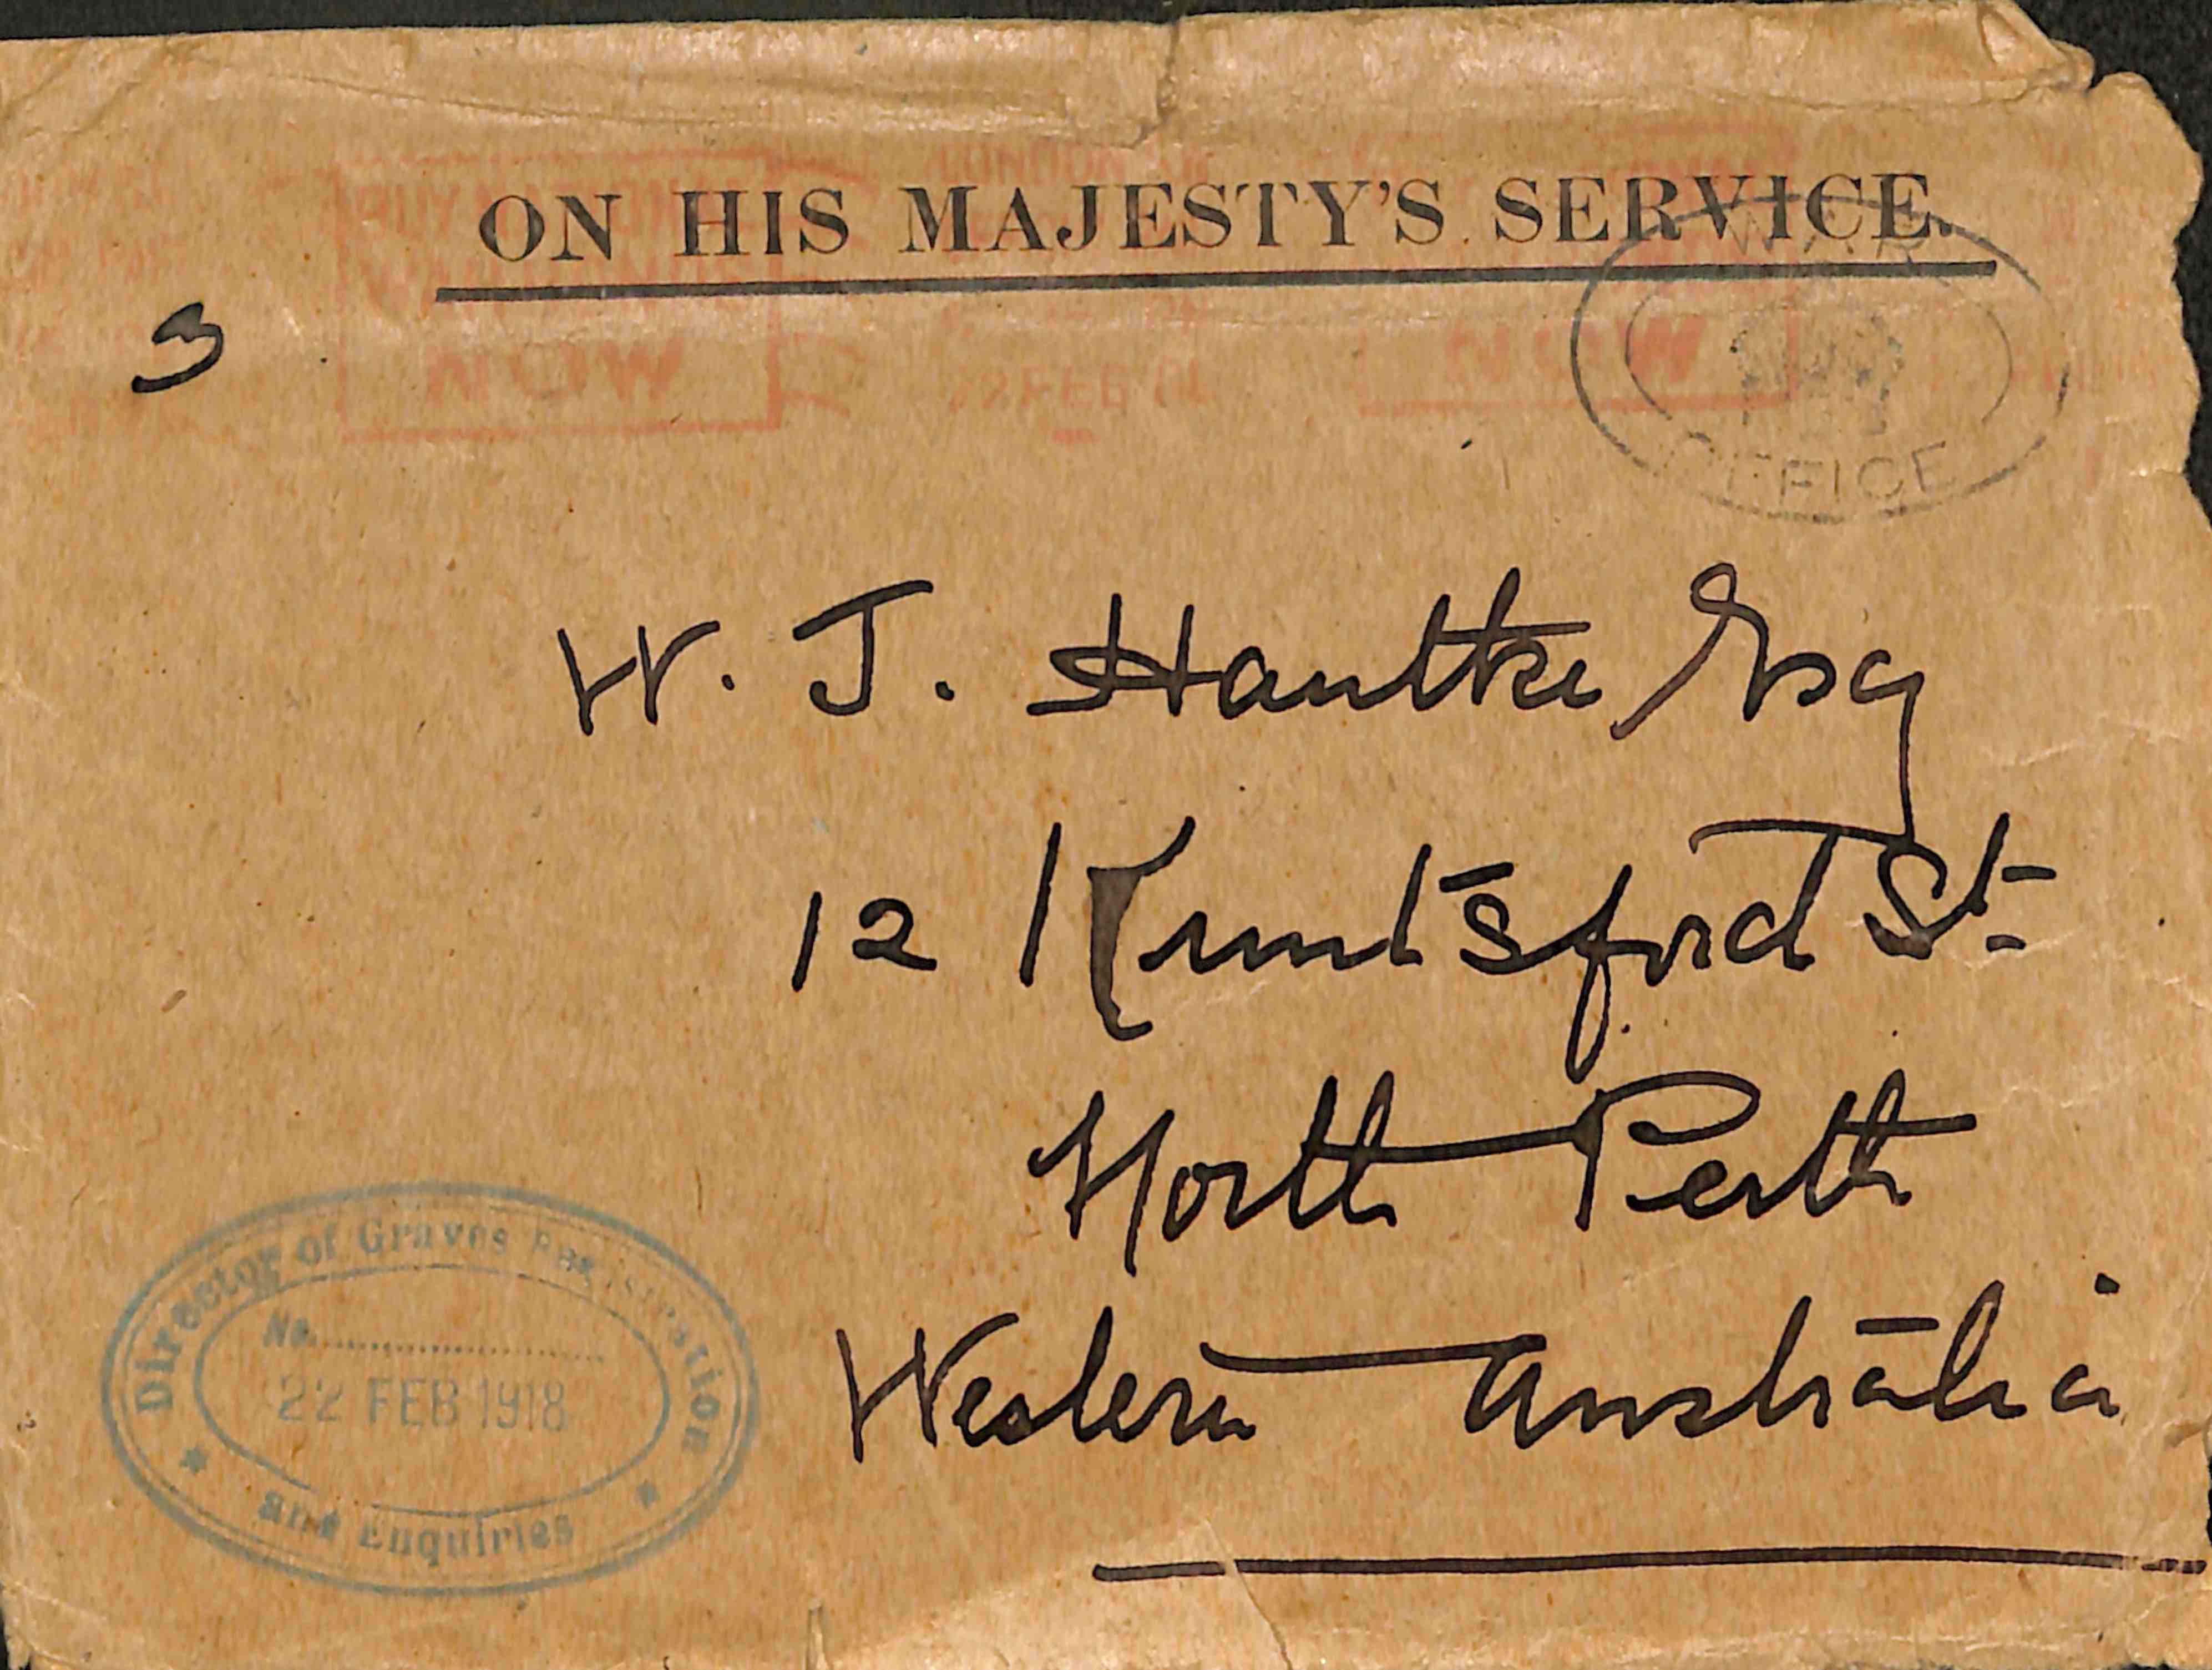 ON HIS MAJESTY'S SERVICE.
WAR
OFFICE
NOW
NOW
3
W. J. Hautke Esq
12 Kuntsford St.
North Perth
Western Australia
Director of Graves Registration
No.
22 FEB 1918
and Enquiries